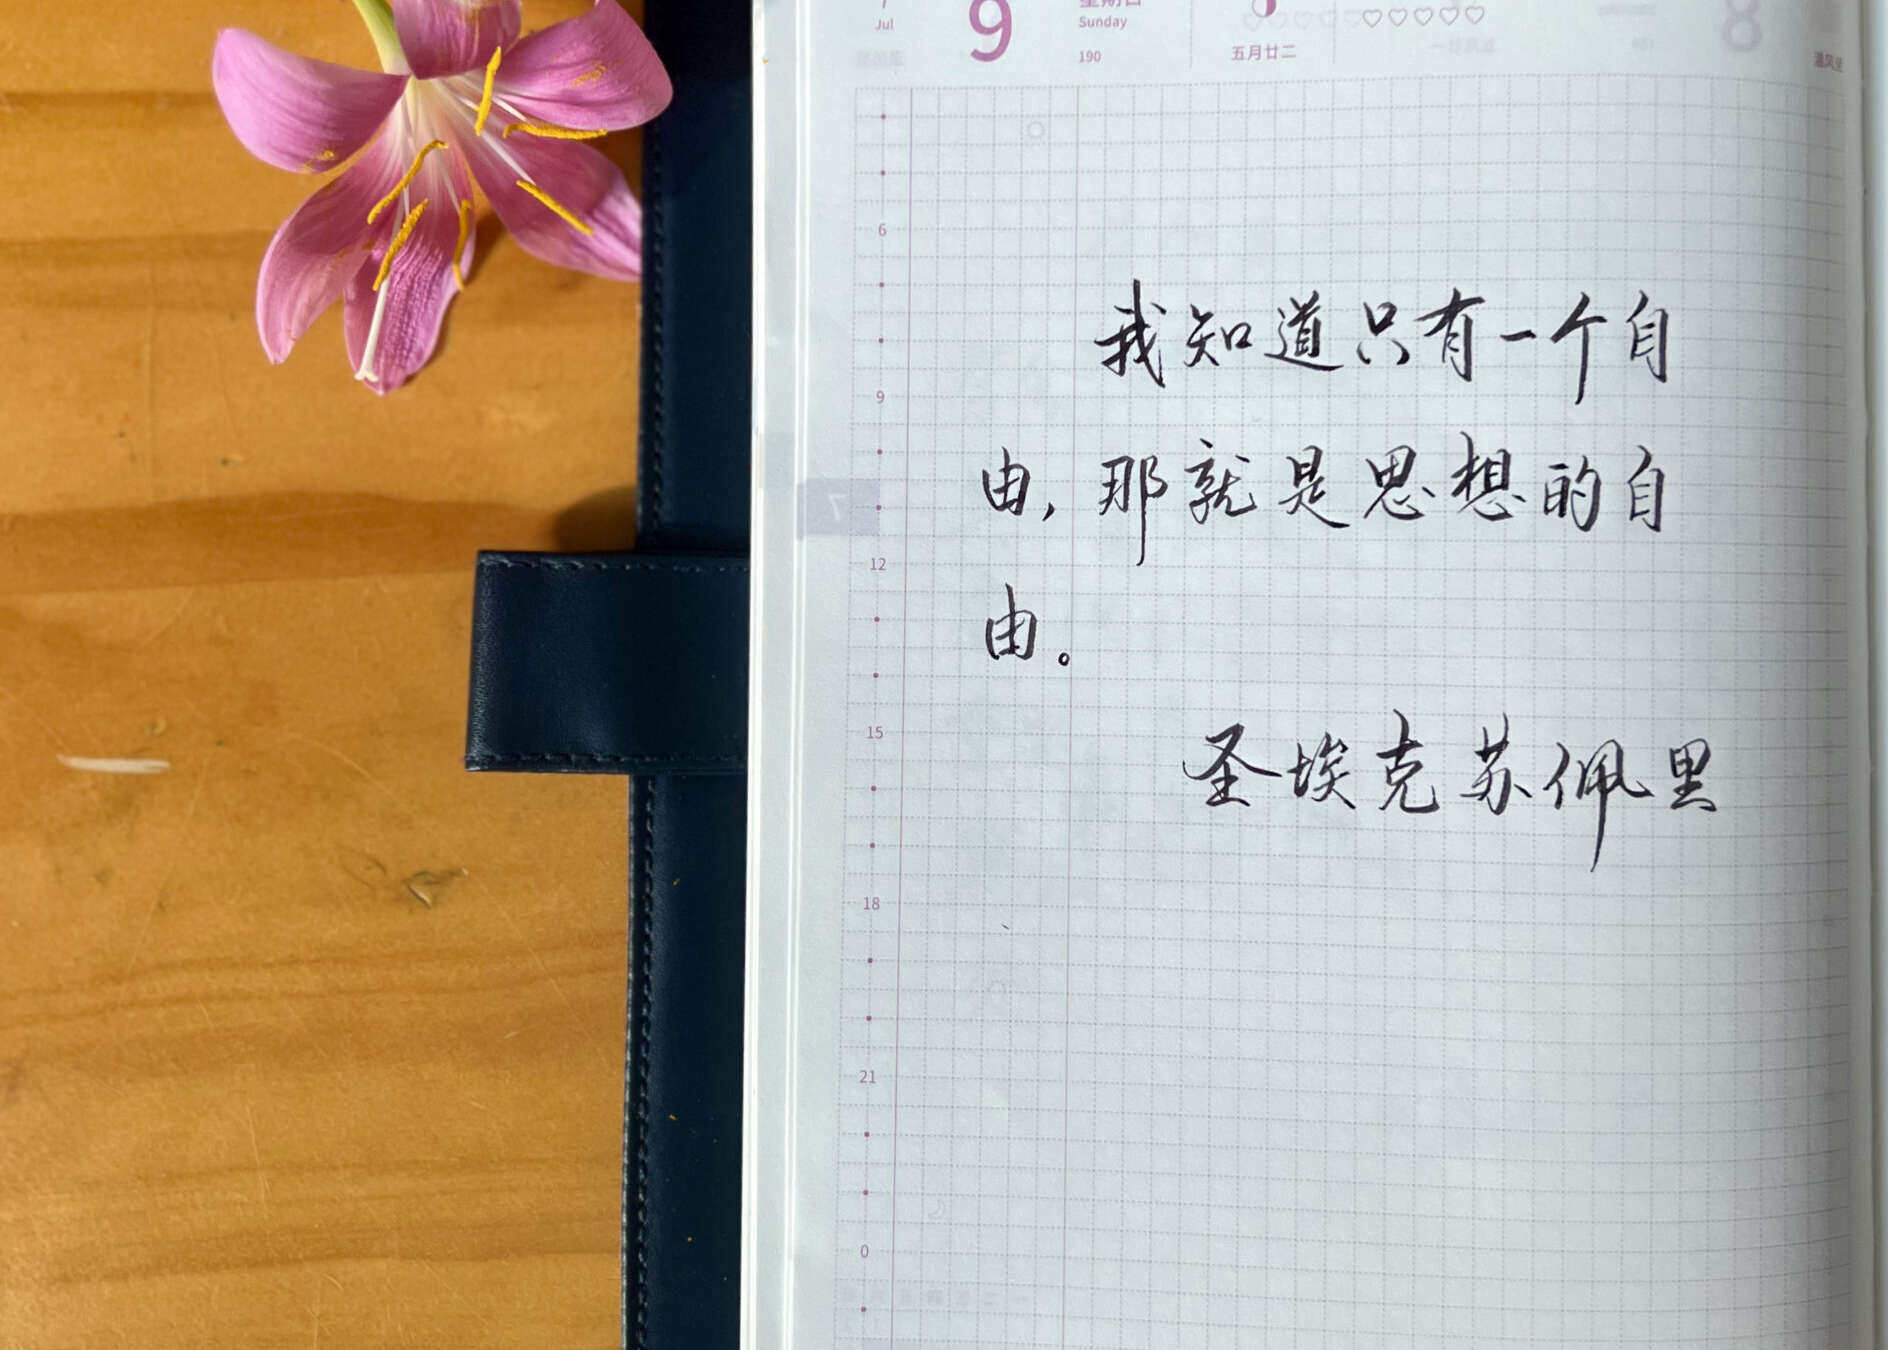 7 9 星期日
Jul Sunday
190 五月廿二
6
我知道只有一个自
9
由,那就是思想的自
12
由。
15
圣埃克苏佩里
18
21
0